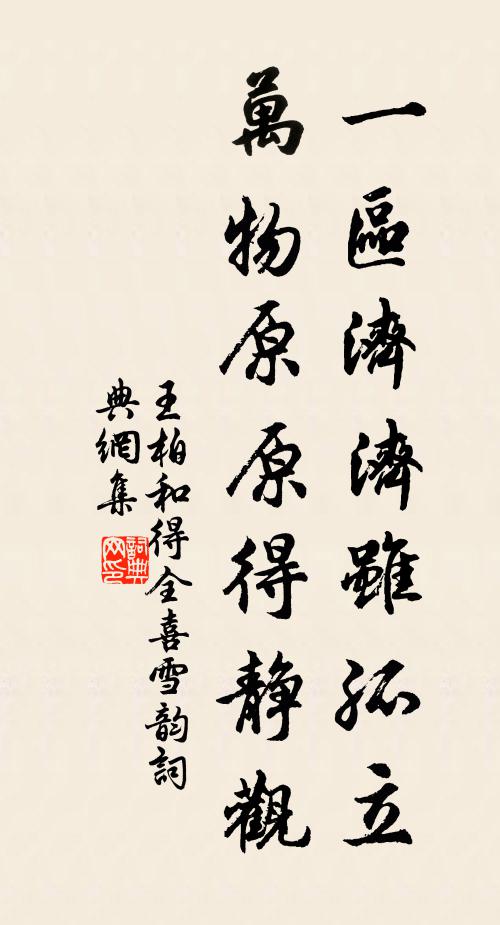 一區濟濟雖孤立
萬物原原得靜觀
王柏和得全喜雪韵詞
典網集
詞典
网印